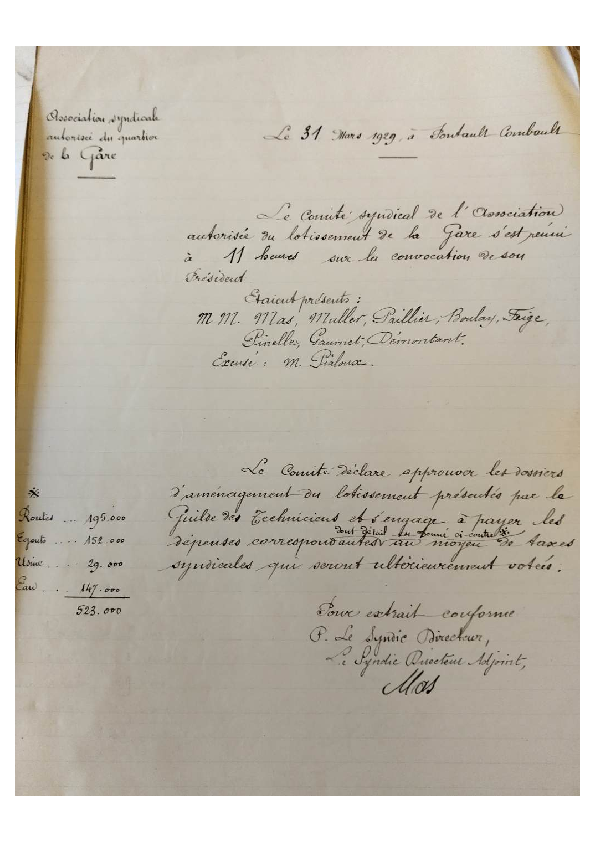 Association syndicale
autorisée du quartier
de la Gare
Le 31 Mars 1929, à Pontault Combault
Le Comité syndical de l'Association
autorisée du lotissement de la Gare s'est réuni
à 11 heures sur la convocation de son
Président
Etaient présents :
M.M. Mas, Muller, Paillier, Boulay, Feige,
Pinelle, Gaumet, Démontant.
Excusé : M. Pialoux.
Le Comité déclare approuver les dossiers
d'aménagement du lotissement présentés par la
Guilde des Techniciens et s'engage à payer les
dont détail est fourni ci-contre *
dépenses correspondantes au moyen de taxes
syndicales qui seront ultérieurement votées.
*
Routes .... 195.000
Egouts .... 152.000
Usine ... 29.000
Eau ... 147.000
523.000
Pour extrait conforme
P. Le Syndic Directeur,
Le Syndic Directeur Adjoint,
Mas